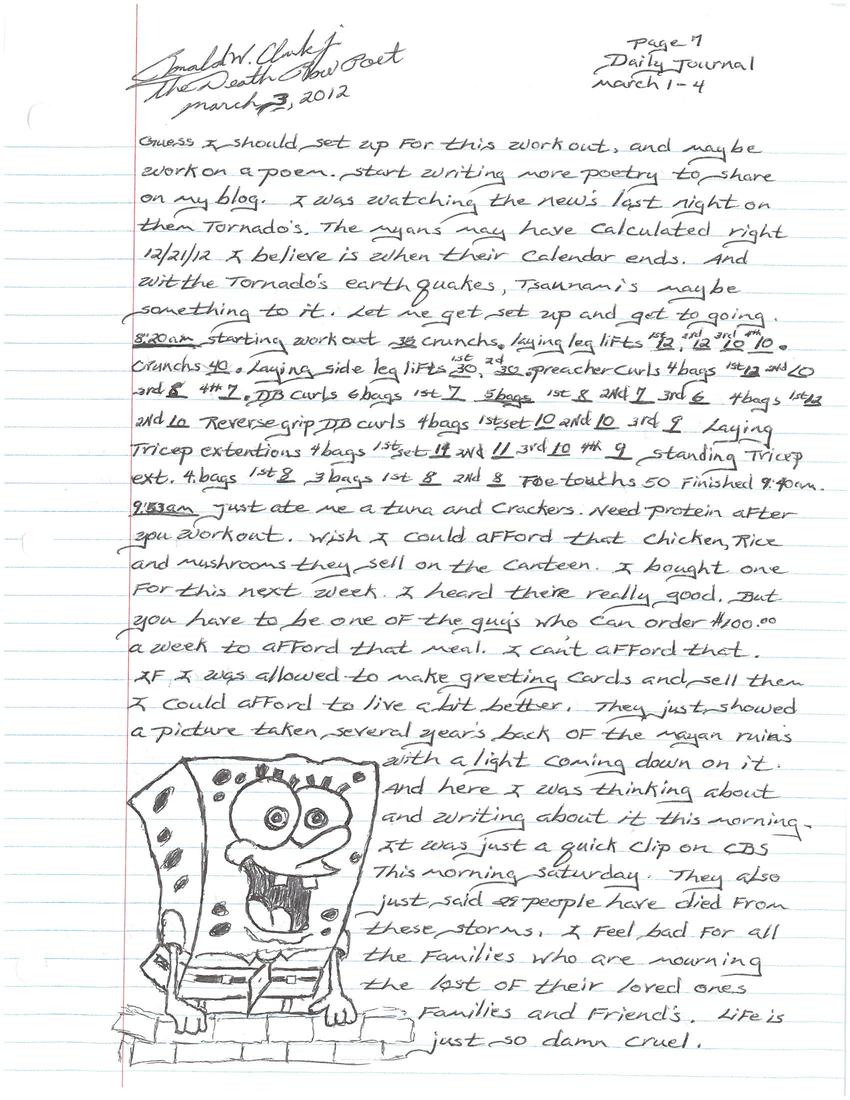 Ronald W. Clark jr
The Death Row Poet
march 3, 2012
Page 7
Daily Journal
march 1-4
Guess I should set up For this work out, and maybe
work on a poem. start writing more poetry to share
on my blog. I was watching the new's last night on
them Tornado's. The myans may have calculated right
12/21/12 I believe is when their Calendar ends. And
wit the Tornado's earth quakes, Tsaunami's maybe
something to it. Let me get set up and get to going.
8:20am starting work out 30 crunchs. laying leg lifts 1st 12, 2nd 12 3rd 10 4th 10.
Crunchs 40. Laying side leg lifts 1st 30, 2d 30. preacher curls 4 bags 1st 12 2nd 10
3rd 8 4th 7. DB curls 6 bags 1st 7 5 bags 1st 8 2nd 7 3rd 6 4 bags 1st 12
2nd 10 Reverse grip DB curls 4 bags 1st set 10 2nd 10 3rd 9 Laying
Tricep extentions 4 bags 1st set 14 2nd 11 3rd 10 4th 9 standing Tricep
ext. 4 bags 1st 8 3 bags 1st 8 2nd 8 Toe touths 50 Finished 9:40am.
9:53am just ate me a tuna and Crackers. Need protein after
you workout. Wish I could afford that Chicken, Rice
and mushrooms they sell on the Canteen. I bought one
For this next week. I heard there really good. But
you have to be one of the guy's who can order $100.00
a week to afford that meal. I can't afford that.
If I was allowed to make greeting cards and sell them
I could afford to live a bit better. They just showed
a picture taken several year's back of the mayan ruin's
with a light coming down on it.
And here I was thinking about
and writing about it this morning.
It was just a quick clip on CBS
This morning saturday. They also
just said people have died From
these storms. I Feel bad For all
the Families who are mourning
the lost of their loved ones
Families and Friend's. Life is
just so damn cruel.